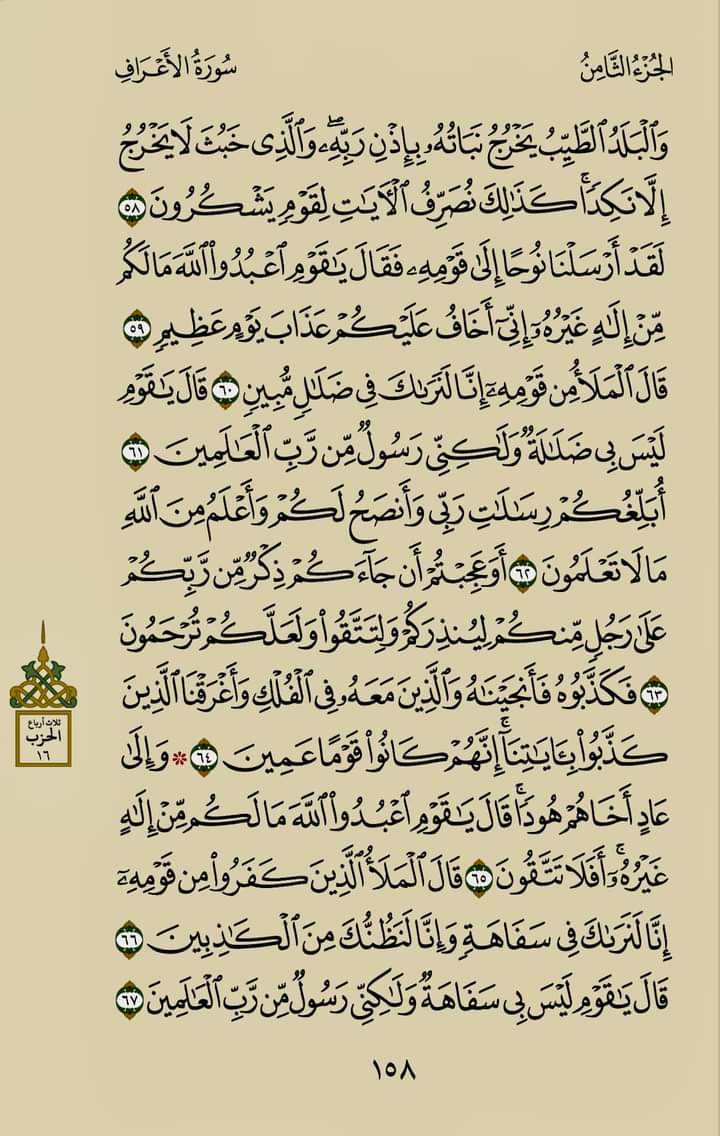 الجُزْءُ الثَّامِنُ
سُورَةُ الأَعْرَافِ
وَٱلْبَلَدُ ٱلطَّيِّبُ يَخْرُجُ نَبَاتُهُۥ بِإِذْنِ رَبِّهِۦۖ وَٱلَّذِى خَبُثَ لَا يَخْرُجُ
إِلَّا نَكِدًاۚ كَذَٰلِكَ نُصَرِّفُ ٱلْأٓيَٰتِ لِقَوْمٍ يَشْكُرُونَ ٥٨
لَقَدْ أَرْسَلْنَا نُوحًا إِلَىٰ قَوْمِهِۦ فَقَالَ يَٰقَوْمِ ٱعْبُدُوا۟ ٱللَّهَ مَا لَكُم
مِّنْ إِلَٰهٍ غَيْرُهُۥٓ إِنِّىٓ أَخَافُ عَلَيْكُمْ عَذَابَ يَوْمٍ عَظِيمٍ ٥٩
قَالَ ٱلْمَلَأُ مِن قَوْمِهِۦٓ إِنَّا لَنَرَىٰكَ فِى ضَلَٰلٍ مُّبِينٍ ٦٠ قَالَ يَٰقَوْمِ
لَيْسَ بِى ضَلَٰلَةٌ وَلَٰكِنِّى رَسُولٌ مِّن رَّبِّ ٱلْعَٰلَمِينَ ٦١
أُبَلِّغُكُمْ رِسَٰلَٰتِ رَبِّى وَأَنصَحُ لَكُمْ وَأَعْلَمُ مِنَ ٱللَّهِ
مَا لَا تَعْلَمُونَ ٦٢ أَوَعَجِبْتُمْ أَن جَآءَكُمْ ذِكْرٌ مِّن رَّبِّكُمْ
عَلَىٰ رَجُلٍ مِّنكُمْ لِيُنذِرَكُمْ وَلِتَتَّقُوا۟ وَلَعَلَّكُمْ تُرْحَمُونَ
٦٣ فَكَذَّبُوهُ فَأَنجَيْنَٰهُ وَٱلَّذِينَ مَعَهُۥ فِى ٱلْفُلْكِ وَأَغْرَقْنَا ٱلَّذِينَ
كَذَّبُوا۟ بِـَٔايَٰتِنَآۚ إِنَّهُمْ كَانُوا۟ قَوْمًا عَمِينَ ٦٤ * وَإِلَىٰ
عَادٍ أَخَاهُمْ هُودًاۚ قَالَ يَٰقَوْمِ ٱعْبُدُوا۟ ٱللَّهَ مَا لَكُم مِّنْ إِلَٰهٍ
غَيْرُهُۥٓۚ أَفَلَا تَتَّقُونَ ٦٥ قَالَ ٱلْمَلَأُ ٱلَّذِينَ كَفَرُوا۟ مِن قَوْمِهِۦٓ
إِنَّا لَنَرَىٰكَ فِى سَفَاهَةٍ وَإِنَّا لَنَظُنُّكَ مِنَ ٱلْكَٰذِبِينَ ٦٦
قَالَ يَٰقَوْمِ لَيْسَ بِى سَفَاهَةٌ وَلَٰكِنِّى رَسُولٌ مِّن رَّبِّ ٱلْعَٰلَمِينَ ٦٧
ثلاث أرباع
الحزب
١٦
١٥٨